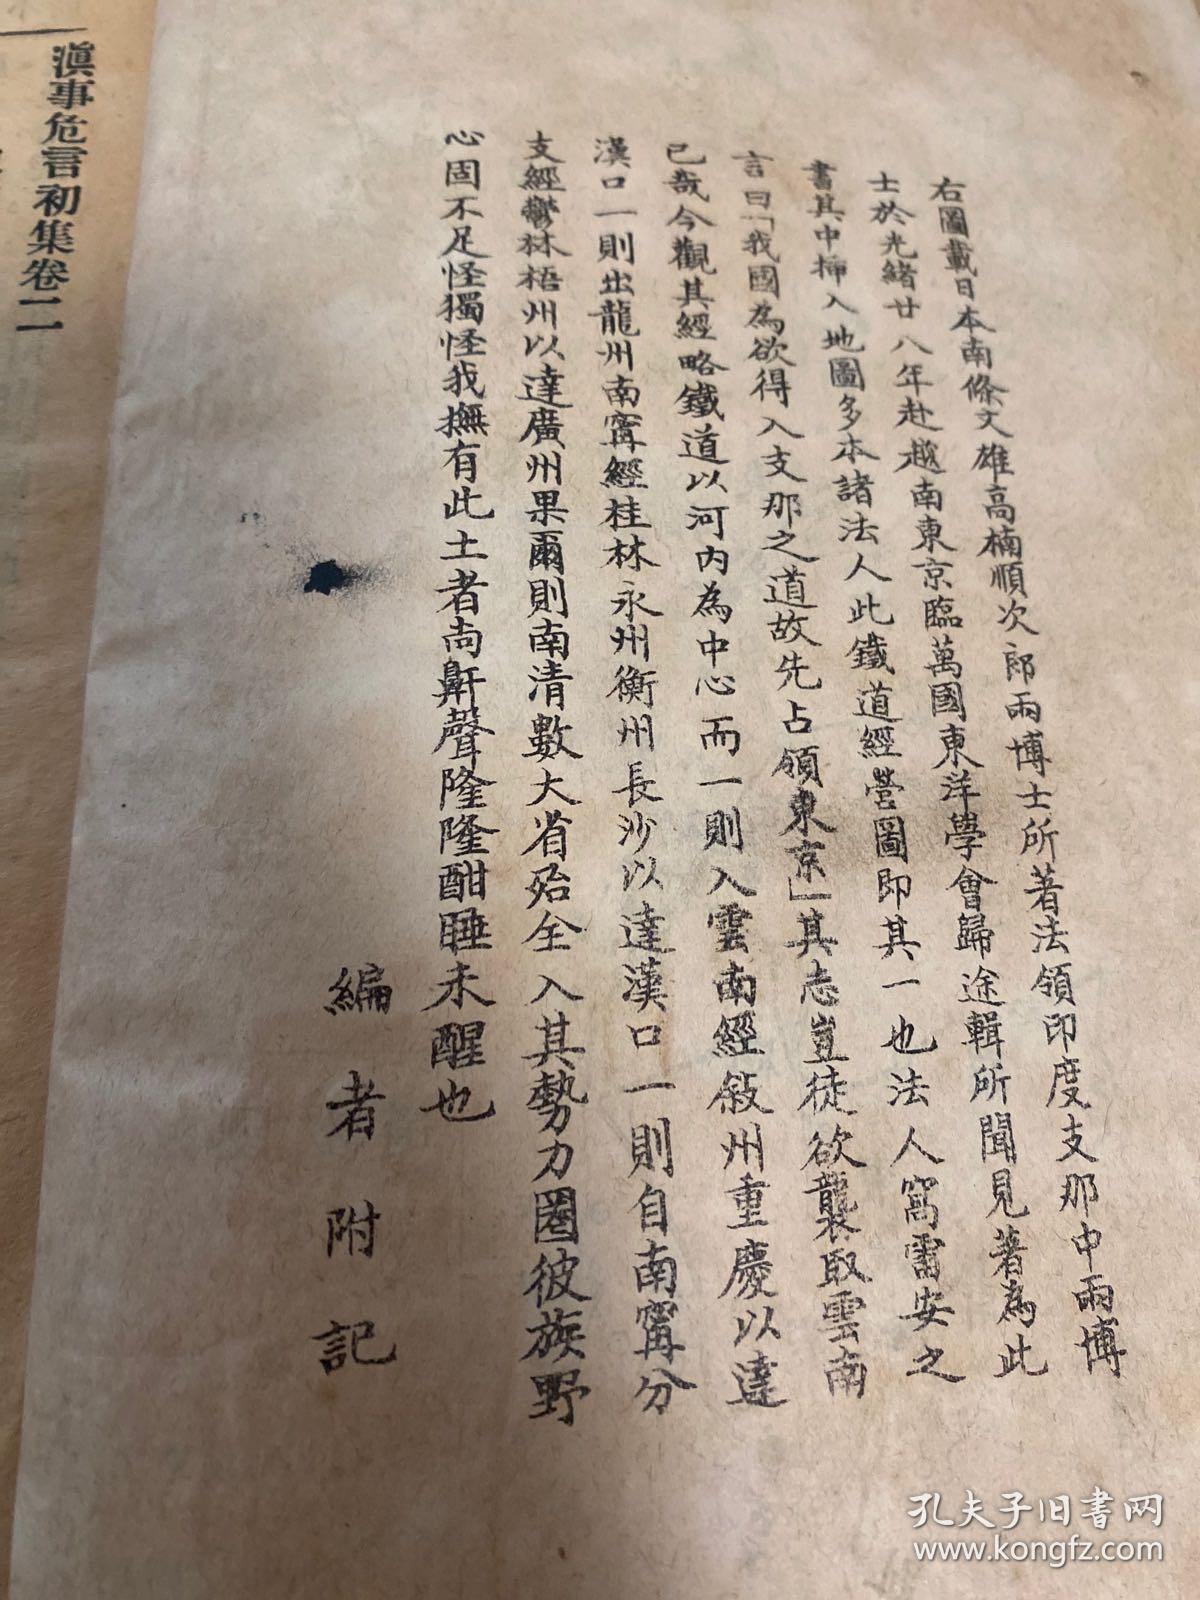 右圖載日本南條文雄高楠順次郎兩博士所著法領印度支那中兩博
士於光緒廿八年赴越南東京臨萬國東洋學會歸途輯所聞見著為此
書其中插入地圖多本諸法人此鐵道經營圖即其一也法人窩雷安之
言曰「我國為欲得入支那之道故先占領東京」其志豈徒欲襲取雲南
已哉今觀其經略鐵道以河內為中心而一則入雲南經敍州重慶以達
漢口一則出龍州南寧經桂林永州衡州長沙以達漢口一則自南寧分
支經鬱林梧州以達廣州果爾則南清數大省殆全入其勢力圈彼族野
心固不足怪獨怪我撫有此土者尚鼾聲隆隆酣睡未醒也
編者附記
滇事危言初集卷二
孔夫子旧书网
www.kongfz.com